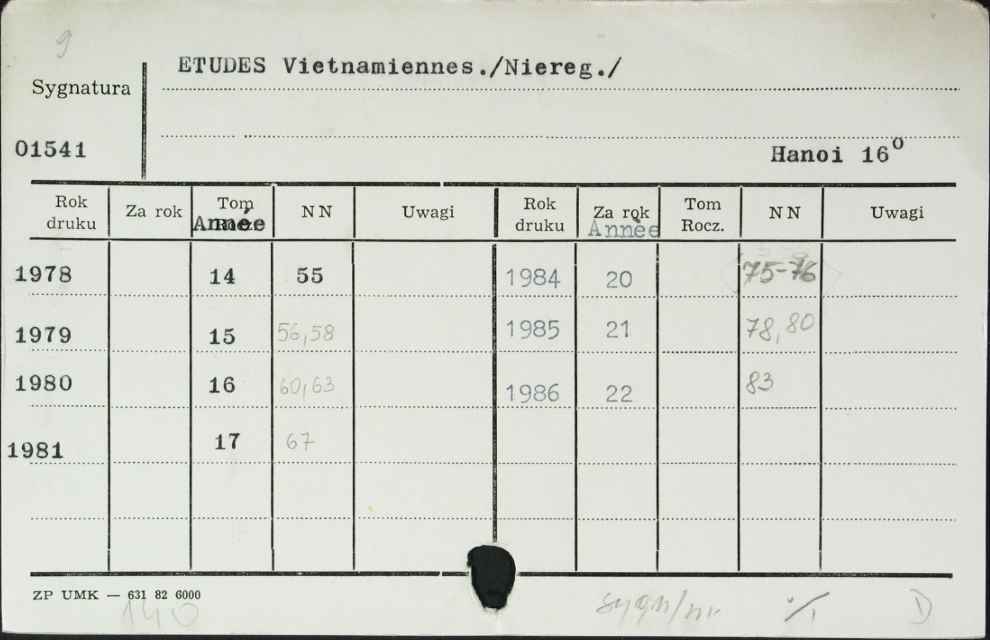 9
ETUDES Vietnamiennes./Niereg./
Sygnatura
01541
Hanoi 16⁰
Rok druku Za rok Tom Année NN Uwagi Rok druku Za rok Année Tom Rocz. NN Uwagi
1978 14 55 1984 20 75-76
1979 15 56,58 1985 21 78,80
1980 16 60,63 1986 22 83
1981 17 67
ZP UMK — 631 82 6000
140 D